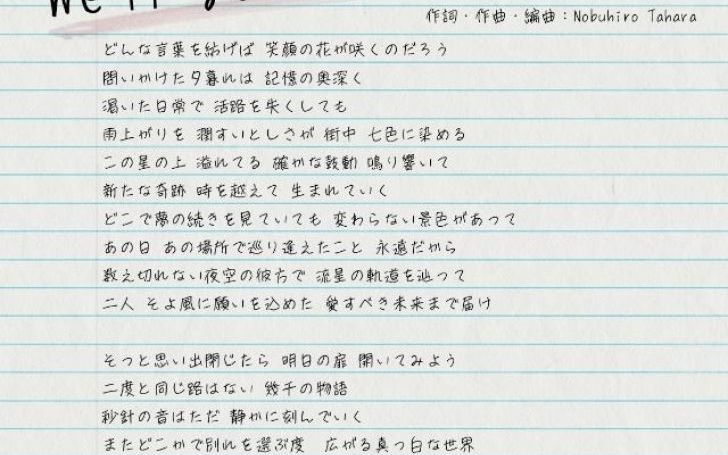 作詞・作曲・編曲：Nobuhiro Tahara
どんな言葉を紡げば 笑顔の花が咲くのだろう
問いかけた夕暮れは 記憶の奥深く
渇いた日常で 活路を失くしても
雨上がりを 潤すいとしさが 街中 七色に染める
この星の上 溢れてる 確かな鼓動 鳴り響いて
新たな奇跡 時を越えて 生まれていく
どこで夢の続きを見ていても 変わらない景色があって
あの日 あの場所で巡り逢えたこと 永遠だから
数え切れない夜空の彼方で 流星の軌道を辿って
二人 そよ風に願いを込めた 愛すべき未来まで届け
そっと思い出閉じたら 明日の扉 開いてみよう
二度と同じ路はない 幾千の物語
秒針の音はただ 静かに刻んでいく
またどこかで別れを選ぶ度 広がる真っ白な世界